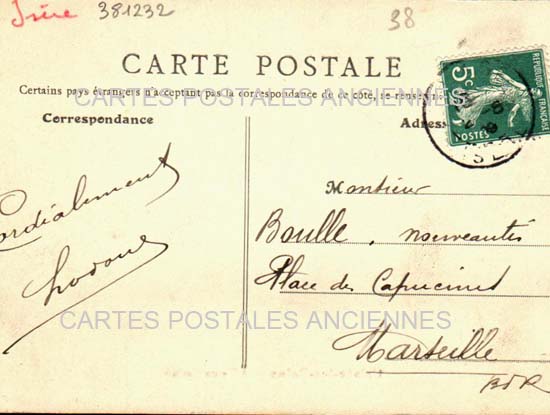 Isère 381232
38
CARTE POSTALE
Certains pays étrangers n'acceptant pas la correspondance de ce côté, se renseigner
CARTES POSTALES ANCIENNES
Correspondance
Adresse
5c
REPUBLIQUE FRANÇAISE
POSTES
Cordialement
Monsieur
Boulle, nouveautés
Place des Capucines
CARTES POSTALES ANCIENNES
Marseille
BDR